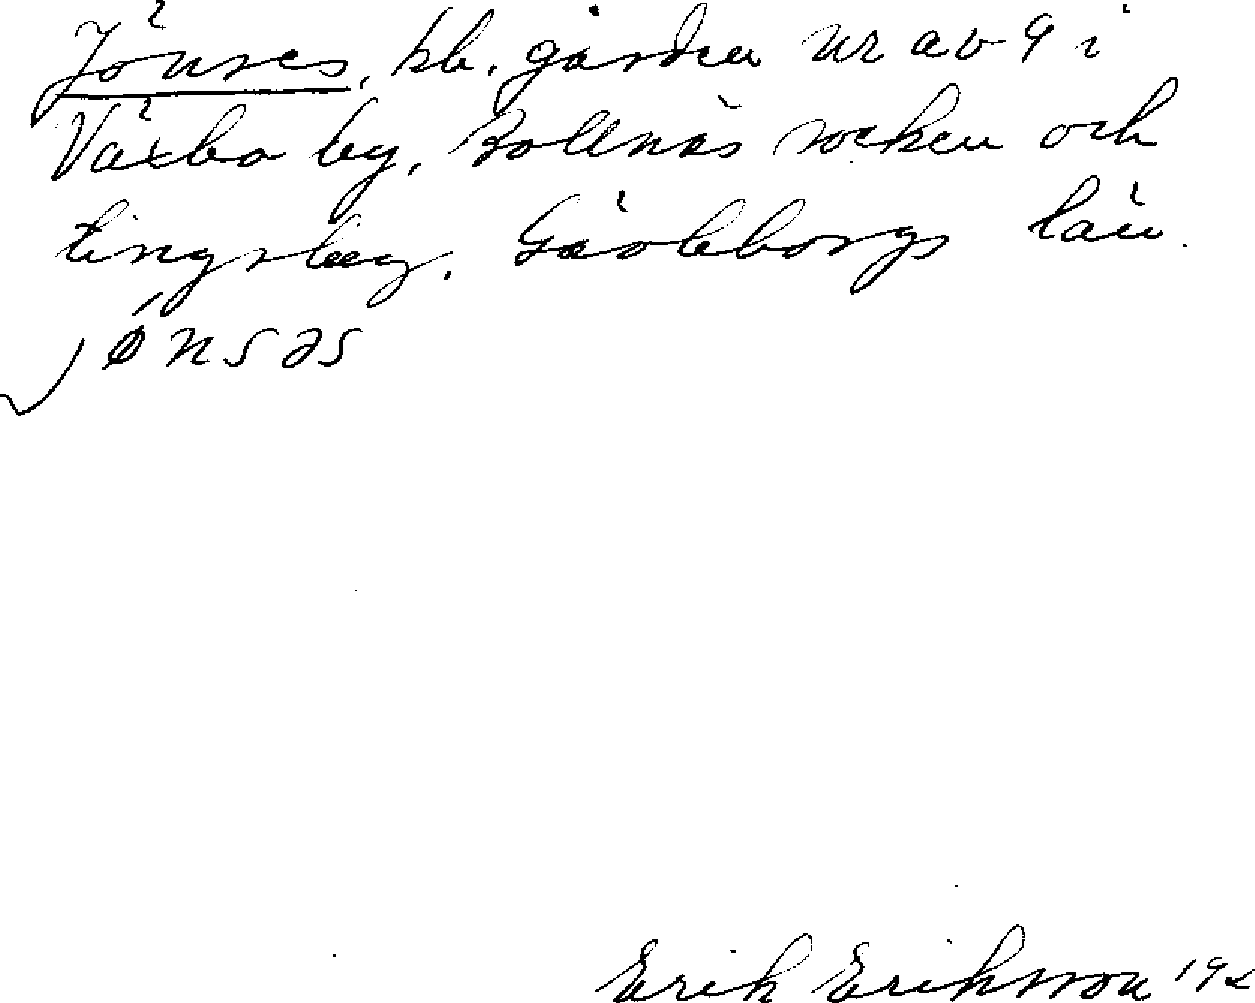 Jönses, kb. gården nr av 9 i
Växbo by, Bollnäs socken och
tingslag. Gävleborgs län.
jønsəs
Erik Eriksson 19